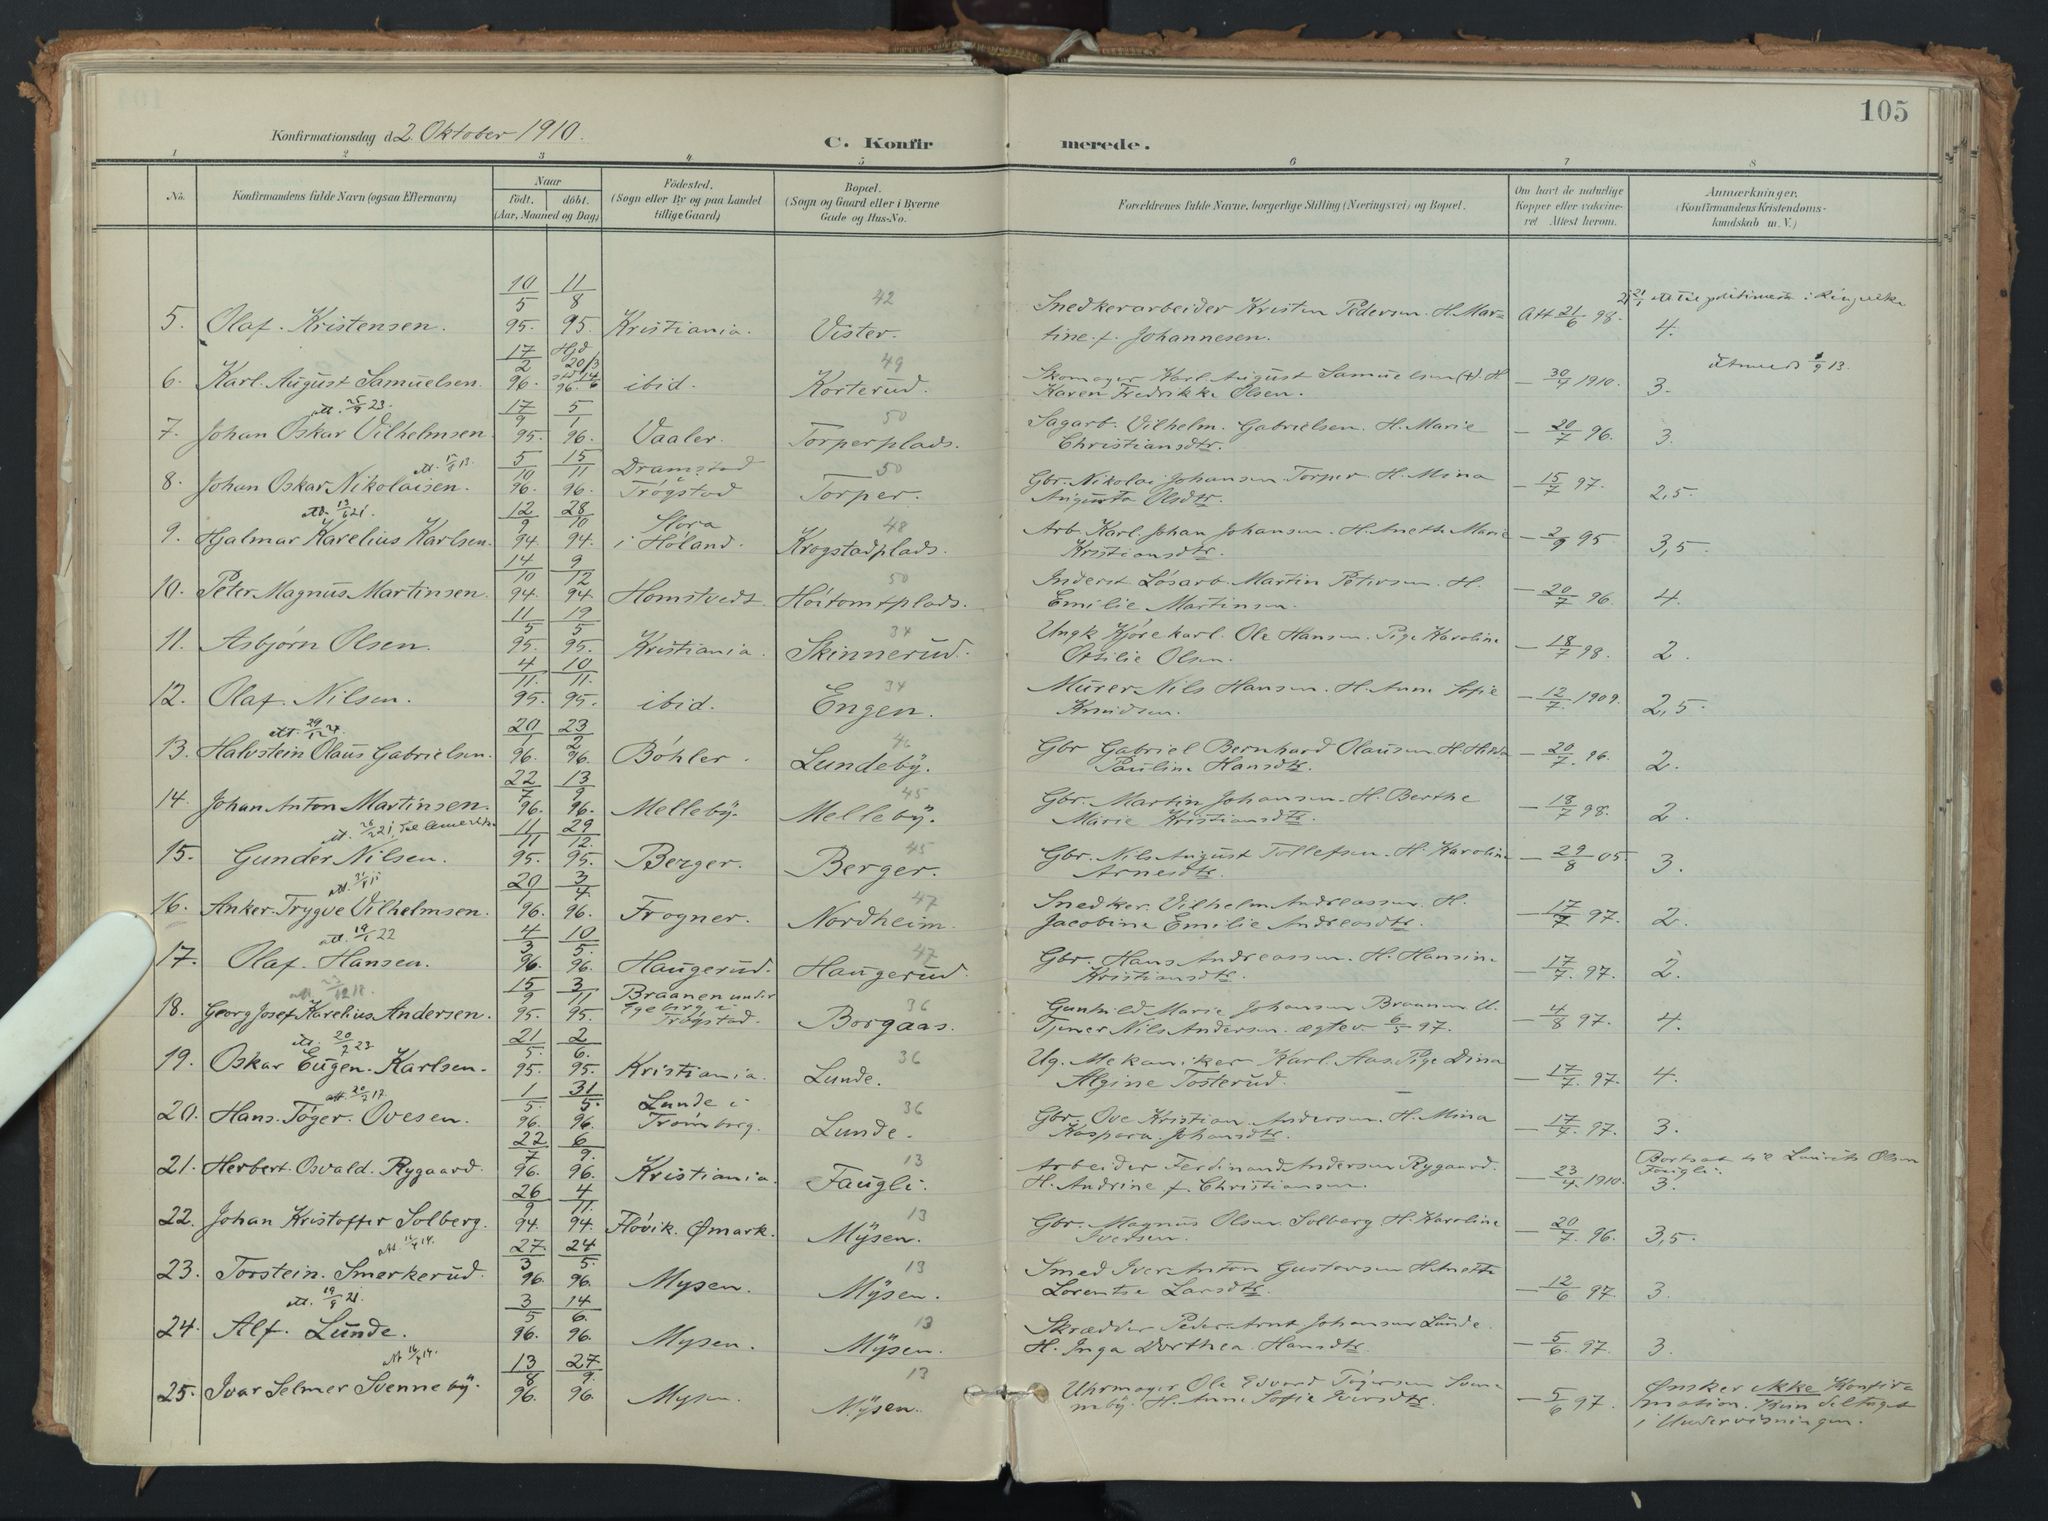 105
Konfirmationsdag d. 2 Oktober 1910.
C. Konfirmerede.
1 2 3 4 5 6 7 8
No. Konfirmandens fulde Navn (ogsaa Efternavn) Naar født. døbt. (Aar, Maaned og Dag) Fødested. (Sogn eller By og paa Landet tillige Gaard) Bopæl. (Sogn og Gaard eller i Byerne Gade og Hus-No. Forældrenes fulde Navne, borgerlige Stilling (Næringsvei) og Bopæl. Om havt de naturlige Kopper eller vaccineret Attest herom. Anmærkninger. (Konfirmandens Kristendomskundskab m. V.)
5. Olaf Kristensen. 10/5 95. 11/8 95. Kristiania. 42 Vister. Snedkerarbeider Kristen Pedersen. H. Martine f. Johannesen. Att 21/6 98. 4.
6. Karl August Samuelsen. 17/2 96. Hjd 20/3 14/6 96. ibid. 49 Korterud. Skomager Karl August Samuelsen (+). H. Karen Fredrikke Olsen. — 30/7 1910. 3.
att. 25/9 23.
7. Johan Oskar Vilhelmsen. 17/9 95. 5/1 96. Vaaler. 50 Torperplads. Sagarb. Vilhelm Gabrielsen. H. Marie Christiansdtr. — 20/7 96. 3.
8. Johan Oskar Nikolaisen. 5/10 96. 15/11 96. Dramstad Trøgstad 50 Torper. Gbr. Nikolai Johansen Torper. H. Mina Augusta Olsdtr. — 15/7 97. 2,5.
att. 13/6 21.
9. Hjalmar Karelius Karlsen. 12/9 94. 28/10 94. Hora i Høland. 48 Krogstadplads. Arb. Karl Johan Johansen. H. Anethe Marie Kristiansdtr. — 2/9 95. 3,5.
10. Peter Magnus Martinsen. 14/10 94. 9/12 94. Homstvedt. 50 Høitomtplads. Inderst Løsarb. Martin Petersen. H. Emilie Martinsen. — 20/7 96. 4.
11. Asbjørn Olsen. 11/5 95. 19/5 95. Kristiania. 34 Skinnerud. Ungk. Kjørekarl Ole Hansen. Pige Karoline Otilie Olsen. — 18/7 98. 2.
12. Olaf Nilsen. 4/11. 95. 10/11. 95. ibid. 34 Engen. Murer Nils Hansen. H. Anne Sofie Knudsen. — 12/7. 1909. 2,5.
13. Halvstein Olaus Gabrielsen. 20/1 96. 23/2 96. Bøhler. 46 Lundeby. Gbr Gabriel Bernhard Olausen. H. Hilda Pauline Hansdtr. — 20/7. 96. 2.
14. Johan Anton Martinsen. 22/7 96. 13/9 96. Melleby. 45 Melleby. Gbr. Martin Johansen. H. Berthe Marie Kristiansdtr. — 18/7 98. 2.
15. Gunder Nilsen. 11/11 95. 29/12. 95. Berger. 45 Berger. Gbr. Nils August Tollefsen. H. Karoline Arnesdtr. — 29/8 05. 3.
16. Anker Trygve Vilhelmsen. 20/1 96. 3/4. 96. Frogner. 47 Nordheim. Snedker Vilhelm Andreassen. H. Jacobine Emilie Andreasdtr. — 17/7 97. 2.
att. 19/1 22
17. Olaf Hansen. 4/3 96. 10/5. 96. Haugerud. 47 Haugerud. Gbr. Hans Andreassen. H. Hansine Kristiansdtr. — 17/7. 97. 2.
18. Georg Josef Karelius Andersen. 15/9 95. 3/11 95. Braanen under Egeberg i Trøgstad. 36 Borgaas. Gunhild Marie Johansen Braanen U. Tjener Nils Andersen. ægtev 6/5 97. — 4/8 97. 4.
att. 20/7 23
19. Oskar Eugen Karlsen. 21/5. 95. 2/6. 95. Kristiania. 36 Lunde. Ug. Mekaniker Karl Aas. Pige Dina Algine Tosterud. — 17/7. 97. 4.
att. 20/7 17.
20. Hans Tøger Ovesen. 1/5. 96. 31/5. 96. Lunde i Trømborg. 36 Lunde. Gbr. Ove Kristian Andersen. H. Mina Kaspara Johansdtr. — 17/7. 97. 3.
21. Herbert Osvald Rygaard. 22/7 96. 6/9. 96. Kristiania. 13 Faugli. Arbeider Ferdinand Andersen Rygaard. H. Andrine f. Christiansen. — 23/4. 1910. Bortsat til Laurits Olsen Faugli. 3.
22. Johan Kristoffer Solberg. 26/9 94. 4/11. 94. Fløvik. Ømark. 13 Mysen. Gbr. Magnus Olsen Solberg. H. Karoline Iversen. — 20/7. 96. 3,5.
23. Torstein Smerkerud. 27/3 96. 24/5. 96. Mysen. 13 Mysen. Smed Iver Anton Gustavsen. H. Anette Lorentse Larsdtr. — 12/6 97. 3.
att. 19/9 21.
24. Alf Lunde. 3/5 96. 14/6. 96. Mysen. 13 Mysen. Skrædder Peder Arnt Johansen Lunde. H. Inga Dorthea Hansdtr. — 5/6. 97. 3.
att 16/7 14.
25. Ivar Selmer Svenneby. 13/8 96. 27/9. 96. Mysen. 13 Mysen. Uhrmager Ole Edvard Tøgersen Svenneby. H. Anne Sofie Iversdtr. — 5/6 97. Ønsker ikke Konfirmation. Kun deltaget i Undervisningen.